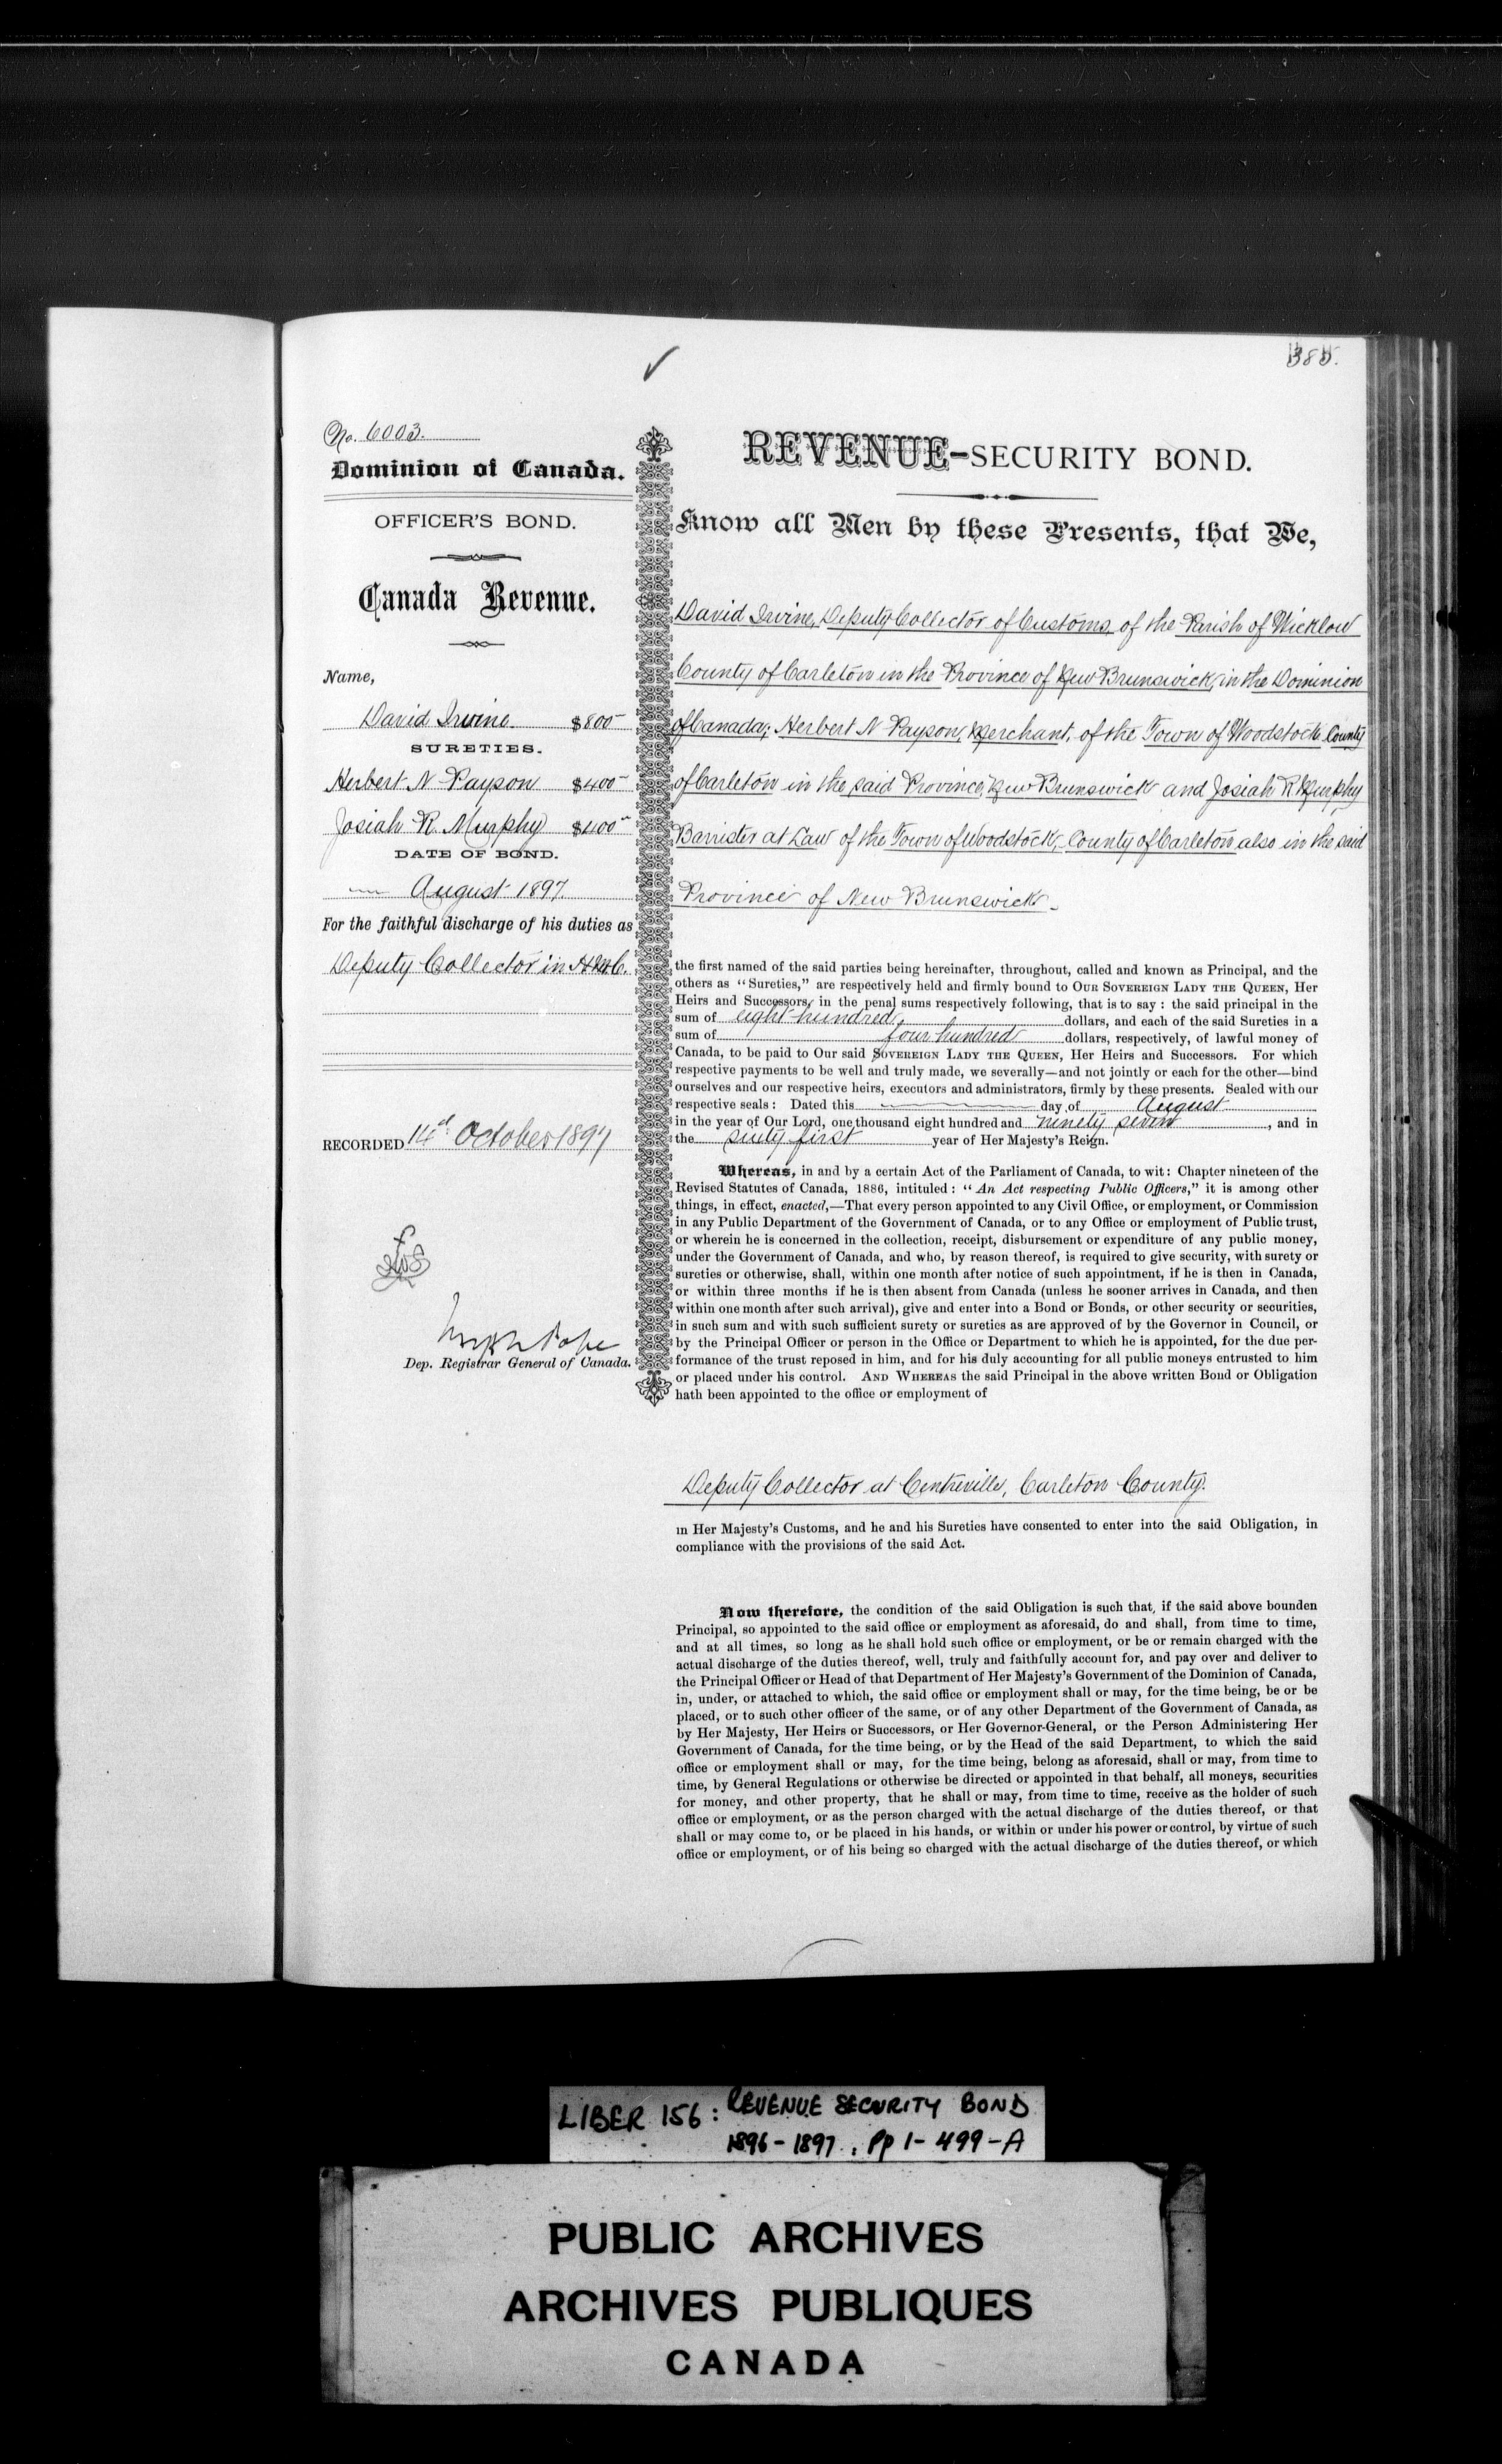 385.
No. 6003.
Dominion of Canada.
OFFICER'S BOND.
Canada Revenue.
Name,
David Irvine $800
SURETIES.
Herbert N Payson $400
Josiah R. Murphy $400
DATE OF BOND.
August 1897.
For the faithful discharge of his duties as
Deputy Collector in H.M.C.
RECORDED 14th October 1897
Joseph Pope
Dep. Registrar General of Canada.
REVENUE-SECURITY BOND.
Know all Men by these Presents, that We,
David Irvine, Deputy Collector of Customs, of the Parish of Wicklow
County of Carleton in the Province of New Brunswick, in the Dominion
of Canada; Herbert N Payson, Merchant, of the Town of Woodstock County
of Carleton in the said Province, New Brunswick and Josiah R Murphy
Barrister at Law of the Town of Woodstock, County of Carleton also in the said
Province of New Brunswick
the first named of the said parties being hereinafter, throughout, called and known as Principal, and the
others as "Sureties," are respectively held and firmly bound to OUR SOVEREIGN LADY THE QUEEN, Her
Heirs and Successors, in the penal sums respectively following, that is to say: the said principal in the
sum of eight hundred dollars, and each of the said Sureties in a
sum of four hundred dollars, respectively, of lawful money of
Canada, to be paid to Our said SOVEREIGN LADY THE QUEEN, Her Heirs and Successors. For which
respective payments to be well and truly made, we severally—and not jointly or each for the other—bind
ourselves and our respective heirs, executors and administrators, firmly by these presents. Sealed with our
respective seals: Dated this day of August
in the year of Our Lord, one thousand eight hundred and ninety seven, and in
the sixty first year of Her Majesty's Reign.
Whereas, in and by a certain Act of the Parliament of Canada, to wit: Chapter nineteen of the
Revised Statutes of Canada, 1886, intituled: "An Act respecting Public Officers," it is among other
things, in effect, enacted,—That every person appointed to any Civil Office, or employment, or Commission
in any Public Department of the Government of Canada, or to any Office or employment of Public trust,
or wherein he is concerned in the collection, receipt, disbursement or expenditure of any public money,
under the Government of Canada, and who, by reason thereof, is required to give security, with surety or
sureties or otherwise, shall, within one month after notice of such appointment, if he is then in Canada,
or within three months if he is then absent from Canada (unless he sooner arrives in Canada, and then
within one month after such arrival), give and enter into a Bond or Bonds, or other security or securities,
in such sum and with such sufficient surety or sureties as are approved of by the Governor in Council, or
by the Principal Officer or person in the Office or Department to which he is appointed, for the due per-
formance of the trust reposed in him, and for his duly accounting for all public moneys entrusted to him
or placed under his control. AND WHEREAS the said Principal in the above written Bond or Obligation
hath been appointed to the office or employment of
Deputy Collector at Centreville, Carleton County.
in Her Majesty's Customs, and he and his Sureties have consented to enter into the said Obligation, in
compliance with the provisions of the said Act.
Now therefore, the condition of the said Obligation is such that, if the said above bounden
Principal, so appointed to the said office or employment as aforesaid, do and shall, from time to time,
and at all times, so long as he shall hold such office or employment, or be or remain charged with the
actual discharge of the duties thereof, well, truly and faithfully account for, and pay over and deliver to
the Principal Officer or Head of that Department of Her Majesty's Government of the Dominion of Canada,
in, under, or attached to which, the said office or employment shall or may, for the time being, be or be
placed, or to such other officer of the same, or of any other Department of the Government of Canada, as
by Her Majesty, Her Heirs or Successors, or Her Governor-General, or the Person Administering Her
Government of Canada, for the time being, or by the Head of the said Department, to which the said
office or employment shall or may, for the time being, belong as aforesaid, shall or may, from time to
time, by General Regulations or otherwise be directed or appointed in that behalf, all moneys, securities
for money, and other property, that he shall or may, from time to time, receive as the holder of such
office or employment, or as the person charged with the actual discharge of the duties thereof, or that
shall or may come to, or be placed in his hands, or within or under his power or control, by virtue of such
office or employment, or of his being so charged with the actual discharge of the duties thereof, or which
LIBER 156: REVENUE SECURITY BOND
1896-1897. Pp 1-499-A
PUBLIC ARCHIVES
ARCHIVES PUBLIQUES
CANADA